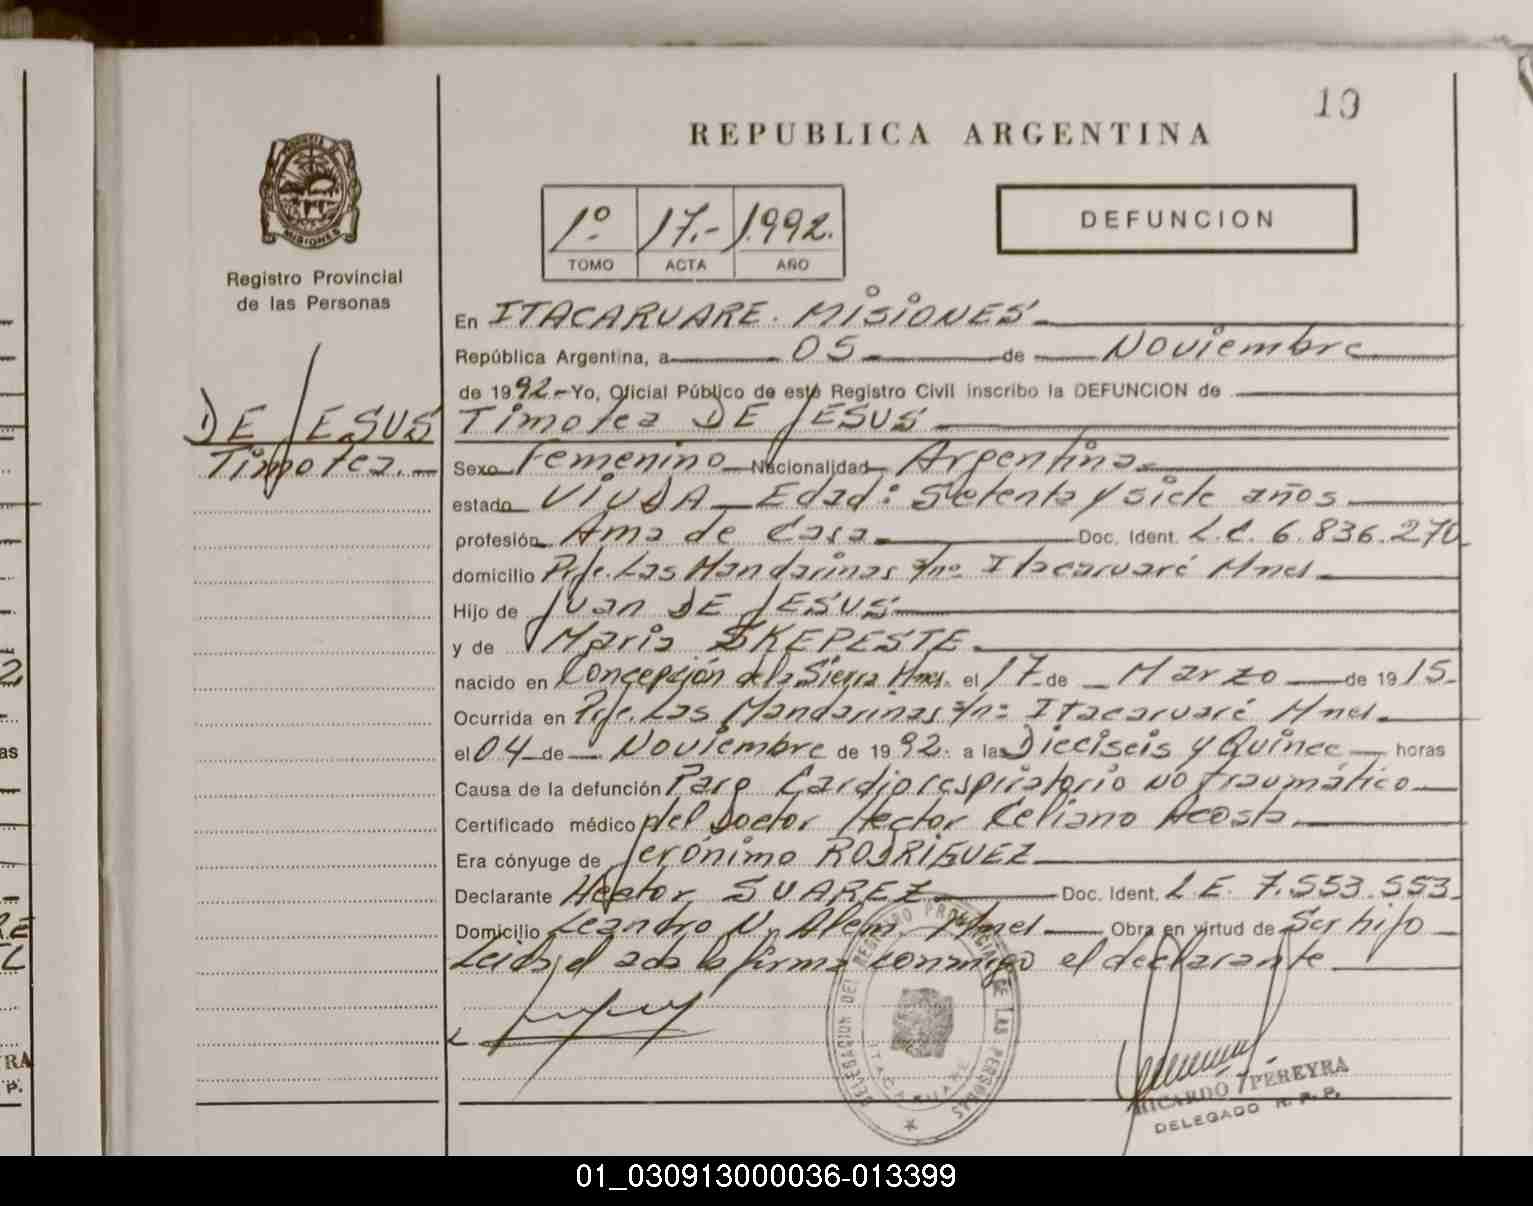 19
REPUBLICA ARGENTINA
MISIONES
Registro Provincial
de las Personas
1º 17.- 1.992.
TOMO ACTA AÑO
DEFUNCION
DE JESUS
Timotea.-
En ITACARUARE. MISIONES
República Argentina, a 05 de Noviembre
de 1992.- Yo, Oficial Público de este Registro Civil inscribo la DEFUNCION de
Timotea DE JESUS
Sexo Femenino Nacionalidad Argentina
estado VIUDA Edad: Setenta y siete años
profesión Ama de Casa Doc. Ident. L.C. 6.836.270
domicilio Pje. Las Mandarinas s/nº Itacaruaré Mnes
Hijo de Juan DE JESUS
y de Maria SKEPESTE
nacido en Concepción de la Sierra Mnes. el 17 de Marzo de 1915.
Ocurrida en Pje. Las Mandarinas s/nº Itacaruaré Mnes.
el 04 de Noviembre de 1992. a las Dieciseis y Quince horas
Causa de la defunción Paro Cardiorespiratorio no traumático
Certificado médico del Doctor Hector Celiano Acosta
Era cónyuge de Jerónimo RODRIGUEZ
Declarante Hector SUAREZ Doc. Ident. L.E. 7.553.553
Domicilio Leandro N. Alem. Mnes Obra en virtud de Ser hijo
Leida el acta la firma conmigo el declarante
DELEGACION DEL REGISTRO PROVINCIAL DE LAS PERSONAS
ITACARUARE
RICARDO PEREYRA
DELEGADO R.P.P.
01_030913000036-013399